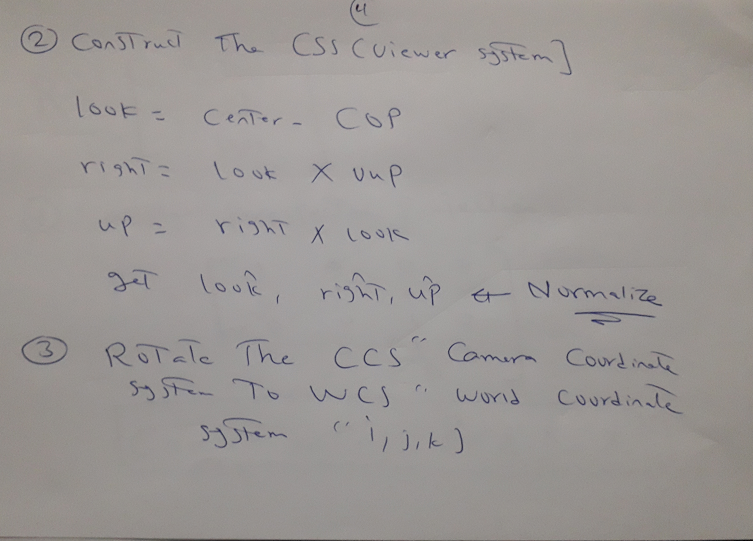 4
② Construct The CSS (Viewer system]
look = Center - COP
right = look X vup
up = right X look
get loôk, riĝht, up̂ ← Normalize
③ Rotate The CCS " Camera Coordinate
system To WCS " World Coordinate
system " i, j, k ]